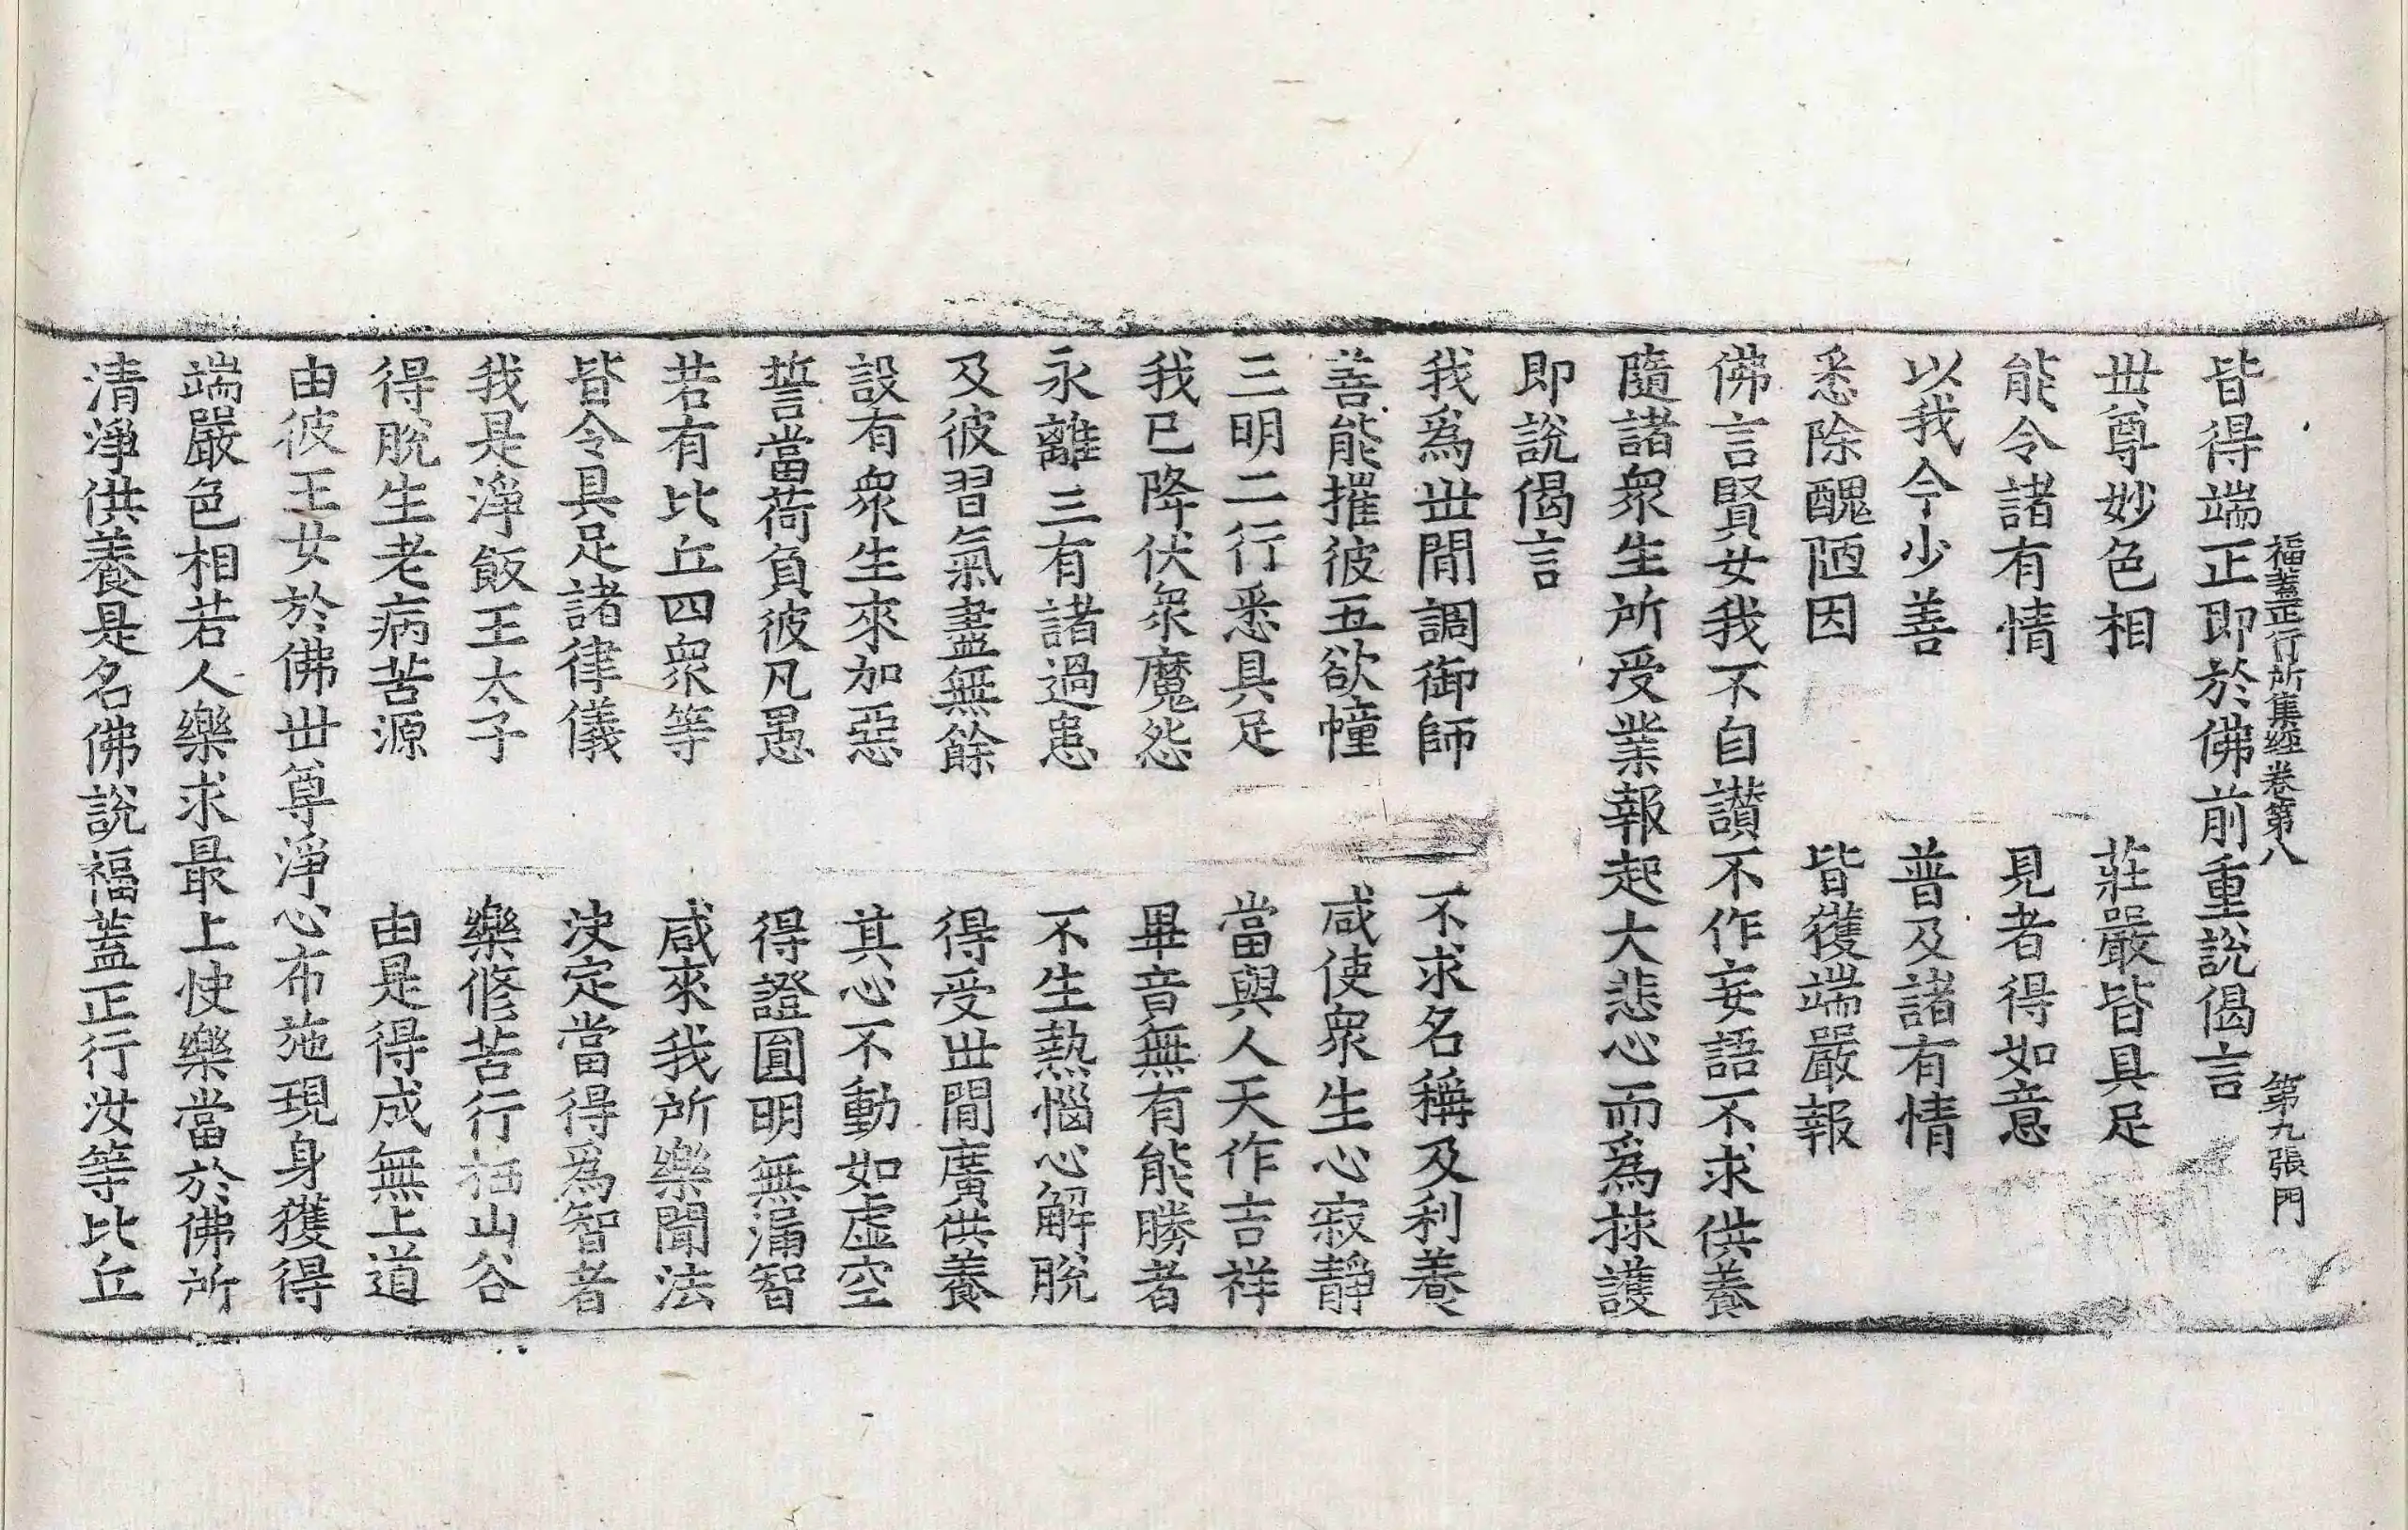 福蓋正行所集經卷第八　第九張　門
皆得端正即於佛前重說偈言
世尊妙色相　莊嚴皆具足
能令諸有情　見者得如意
以我今少善　普及諸有情
悉除醜陋因　皆獲端嚴報
佛言賢女我不自讃不作妄語不求供養
隨諸衆生所受業報起大悲心而爲捄護
即說偈言
我爲世閒調御師　不求名稱及利養
善能摧彼五欲幢　咸使衆生心寂靜
三明二行悉具足　當與人天作吉祥
我已降伏衆魔怨　畢音無有能勝者
永離三有諸過患　不生熱惱心解脫
及彼習氣盡無餘　得受世閒廣供養
設有衆生來加惡　其心不動如虛空
誓當荷負彼凡愚　得證圓明無漏智
若有比丘四衆等　咸來我所樂聞法
皆令具足諸律儀　決定當得爲智者
我是淨飯王太子　樂修苦行栖山谷
得脫生老病苦源　由是得成無上道
由彼王女於佛世尊淨心布施現身獲得
端嚴色相若人樂求最上快樂當於佛所
清淨供養是名佛說福蓋正行汝等比丘